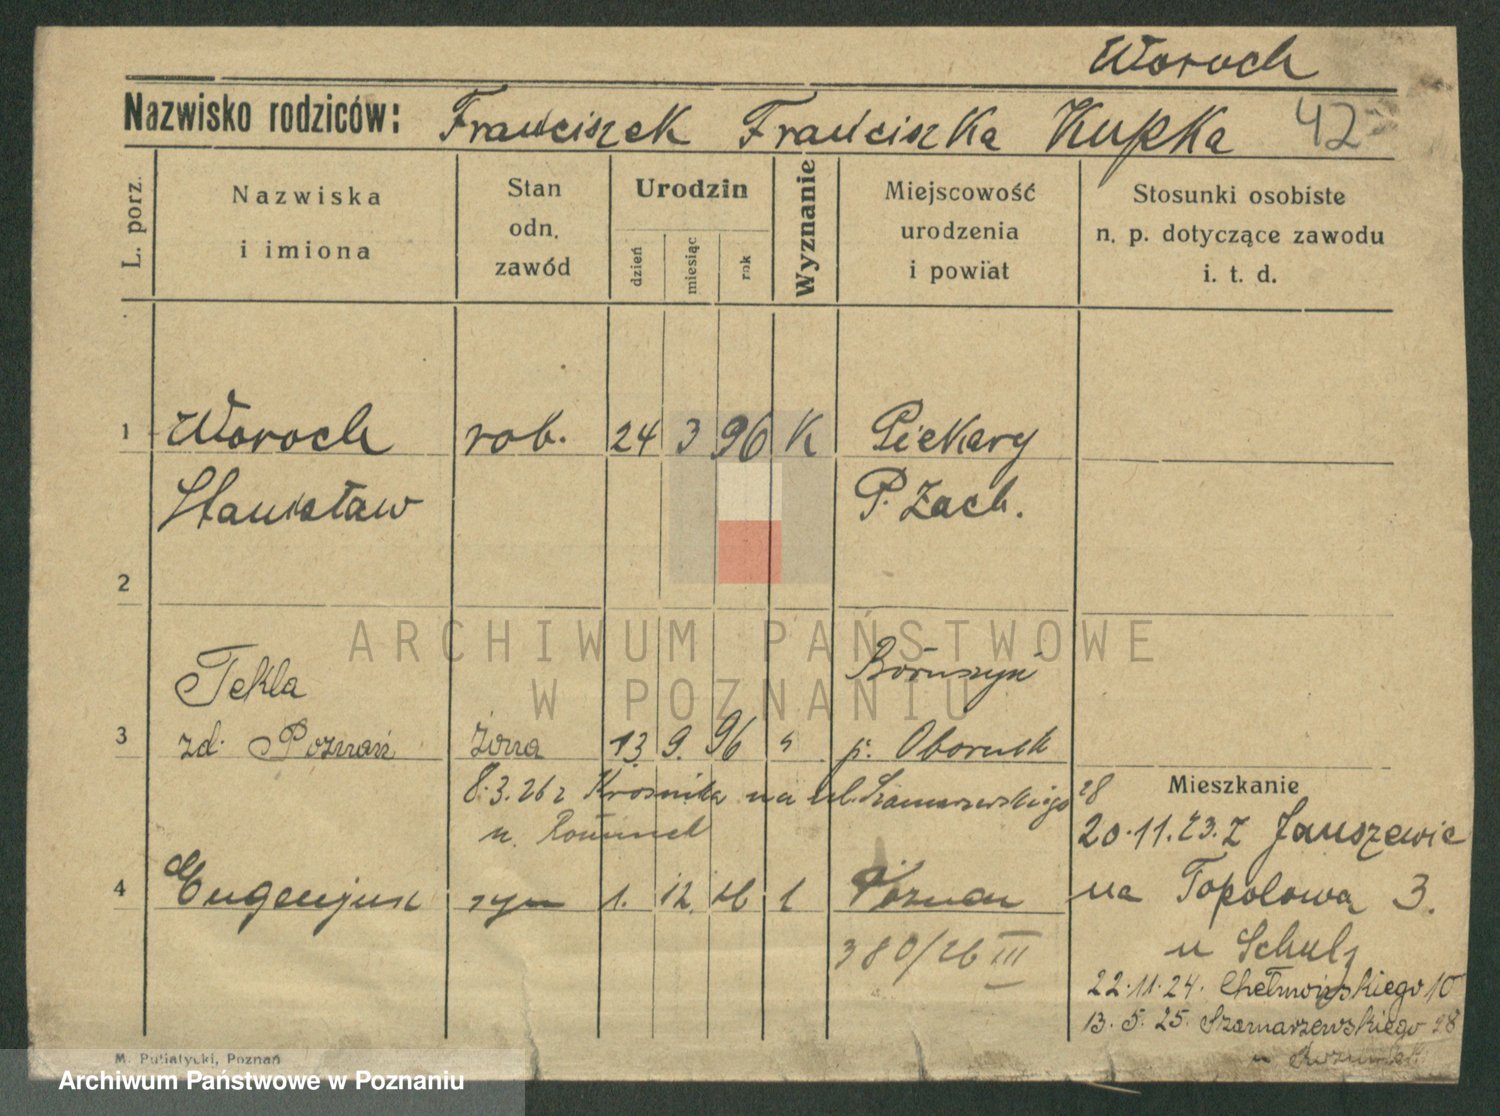 Woroch
Nazwisko rodziców: Franciszek Franciszka Kupka 42
L. porz.
Nazwiska
i imiona
Stan
odn.
zawód
Urodzin
dzień
miesiąc
rok
Wyznanie
Miejscowość
urodzenia
i powiat
Stosunki osobiste
n. p. dotyczące zawodu
i. t. d.
1 Woroch rob. 24 3 96 K Piekary
Stanisław P. Zach.
2
ARCHIWUM PAŃSTWOWE
W POZNANIU
Tekla Boruszyn
3 zd. Poznań żona 13. 9. 96 p. Obornik
8.3.26 z na ul. Szamarzewskiego 28
u.
Mieszkanie
20.11.23. z Januszewic
4 Eugenjusz syn 1. 12. 26 Poznań
na Topolowa 3.
380/26 III
u Schulz
22.11.24. Chełmońskiego 10
13. 5. 25. Szamarzewskiego 28
u
M. Putiatycki, Poznań
Archiwum Państwowe w Poznaniu